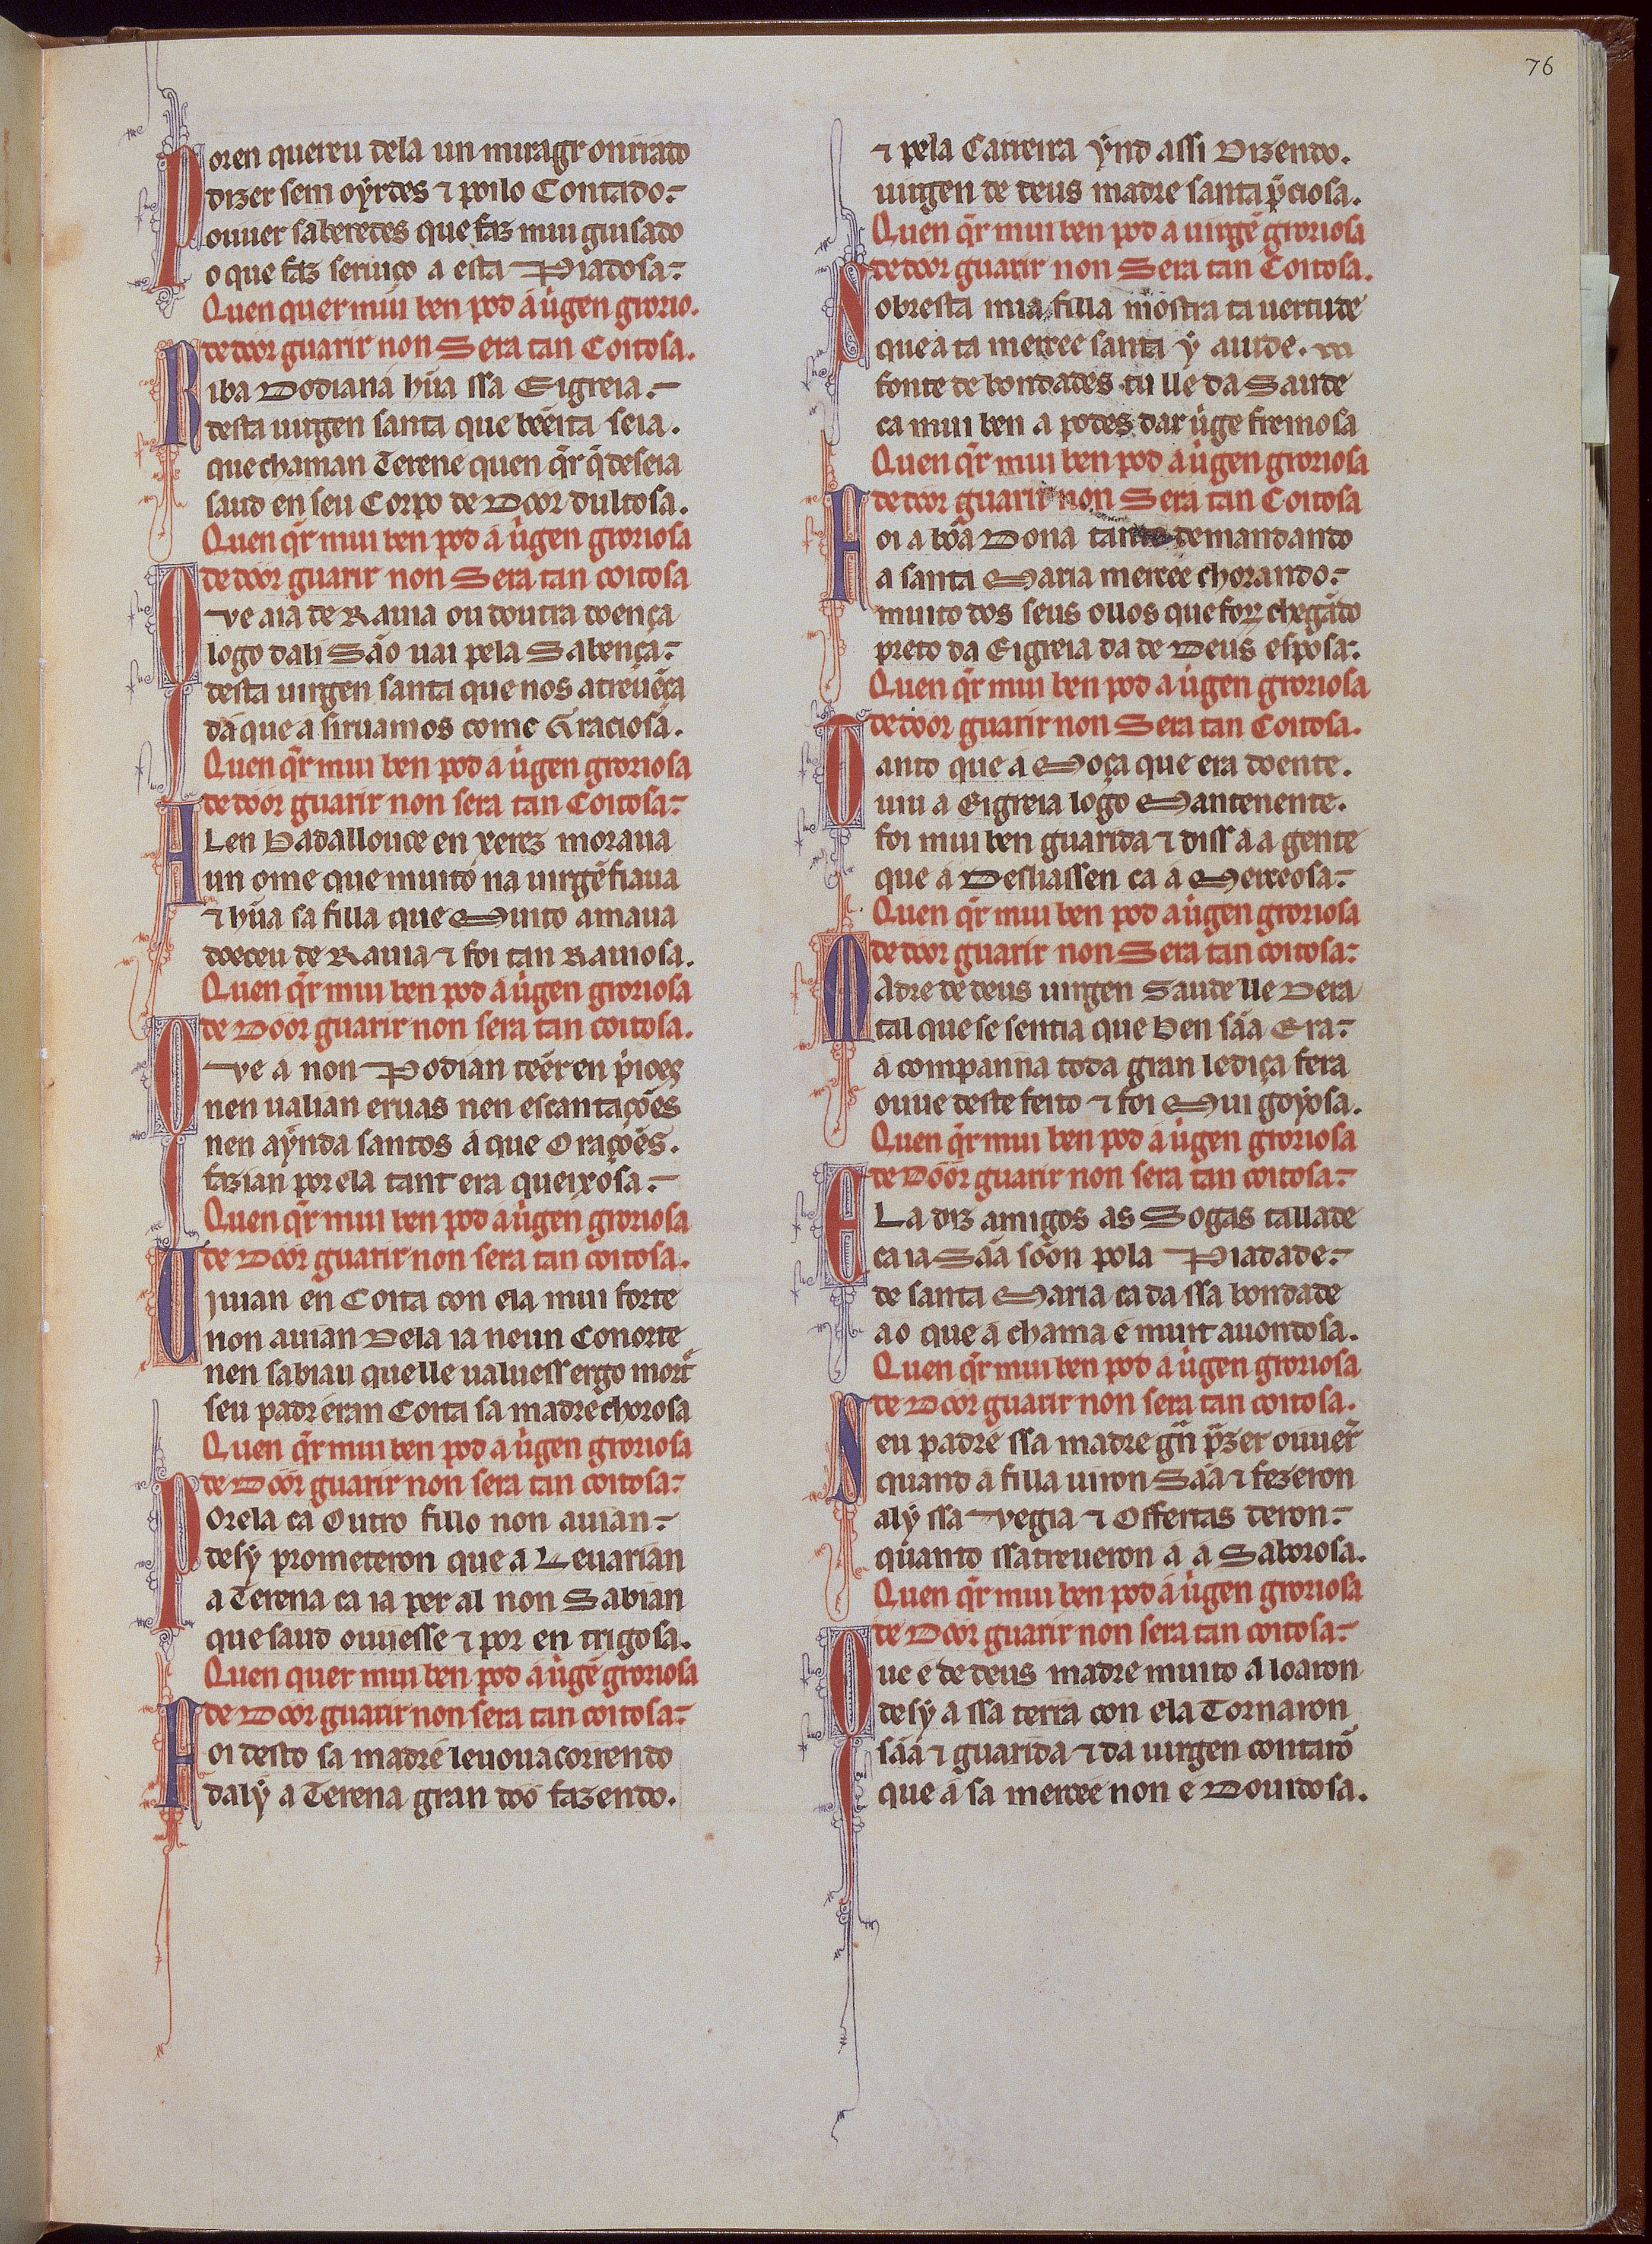 76
Poren quereu dela un miragr onrrado
dizer sem oyrdes ⁊ poilo Contado:-
ouuer saberedes que faz mui guisado
o que faz seruiço a esta Piadosa:-
Quen quer mui ben pod á uirgen grorio.
de door guarir non Sera tan Coitosa.
Riba Dodiana hũa ssa Eigreia.-
desta uirgen santa que bẽeita seia.
que chaman Terene quen q̃r q̃ deseia
saud en seu Corpo de Door dultosa.
Quen q̃r mui ben pod á uirgen groriosa
de door guarir non Sera tan coitosa
Que aia de Rauia ou doutra doença
logo dali São uai pela Sabença:-
desta uirgen santa que nos atreuẽça
dá que á siruamos come Graciosa.
Quen q̃r mui ben pod á uirgen groriosa
de door guarir non sera tan Coitosa:-
ALen Badallouce en xerez moraua
un ome que muito na uirgẽ fiaua
⁊ hũa sa filla que Muito amaua
doeceu de Rauia ⁊ foi tan Rauiosa.
Quen q̃r mui ben pod á uirgen groriosa
de Door guarir non sera tan coitosa.
Que á non Podian tẽer en prijoes
nen ualian eruas nen escantações
nen aynda santos á que Orações.
fazian por ela tant era queixosa.-
Quen q̃r mui ben pod á uirgen groriosa
de Door guarir non sera tan coitosa.
Uiuian en Coita con ela mui forte
non auian Dela ia neun Conorte
nen sabian que lle ualuess ergo mort
seu padr eran Coita sa madre chorosa
Quen q̃r mui ben pod á uirgen groriosa
de Door guarir non sera tan coitosa:-
Porela ca Outro fillo non auian:-
desy prometeron que á Leuarian
a Terena ca ia per al non Sabian
que saud ouuesse ⁊ por en trigosa.
Quen quer mui ben pod á uirgẽ groriosa
de Door guarir non sera tan coitosa:-
Foi desto sa madre leuoua correndo
daly a Terena gran doo fazendo.
⁊ pela Carreira ynd assi Dizendo.
uirgen de deus madre santa p̃ciosa.
Quen q̃r mui ben pod á uirgẽ groriosa
de door guarir non Sera tan Coitosa.
Sobresta mia filla mostra ta uertude
que a ta mercee santa y aiude.
fonte de bondades tu lle da Saude
ca mui ben a podes dar uirgẽ fremosa
Quen q̃r mui ben pod á uirgen groriosa
de door guarir non Sera tan Coitosa
Foi a bõa Dona tanto demandando
a santa Maria mercee chorando:-
muito dos seus ollos que forõ chegãdo
preto da Eigreia da de Deus esposa:-
Quen q̃r mui ben pod á uirgen groriosa
de door guarir non Sera tan Coitosa.
Tanto que á Moça que era doente.
uiu a Eigreia logo Mantenente.
foi mui ben guarida ⁊ diss aa gente
que á Desliassen ca á Merceosa:-
Quen q̃r mui ben pod á uirgen groriosa
de door guarir non Sera tan coitosa:-
MAdre de deus uirgen Saude lle Dera
tal que se sentia que Ben sãa Era:-
a companna toda gran lediça fera
ouue deste feito ⁊ foi Mui goyosa.
Quen q̃r mui ben pod á uirgen groriosa
de Door guarir non sera tan coitosa:-
ELa diz amigos as Sogas tallade
ca ia Sãa sõon pola Piadade:-
de santa Maria ca da ssa bondade
ao que á chama é muit auondosa.
Quen q̃r mui ben pod á uirgen groriosa
de Door guarir non sera tan coitosa.
Seu padre ssa madre grã p̃zer ouuer̃
quand a filla uiron Sãa ⁊ fezeron
aly ssa Vegia ⁊ Offertas deron:-
quanto ssatreueron a á Saborosa.
Quen q̃r mui ben pod á uirgen groriosa
de Door guarir non sera tan coitosa:-
Que é de deus madre muito á loaron
desy a ssa terra con ela Tornaron
sãa ⁊ guarida ⁊ da uirgen contarõ
que á sa mercee non é Douidosa.